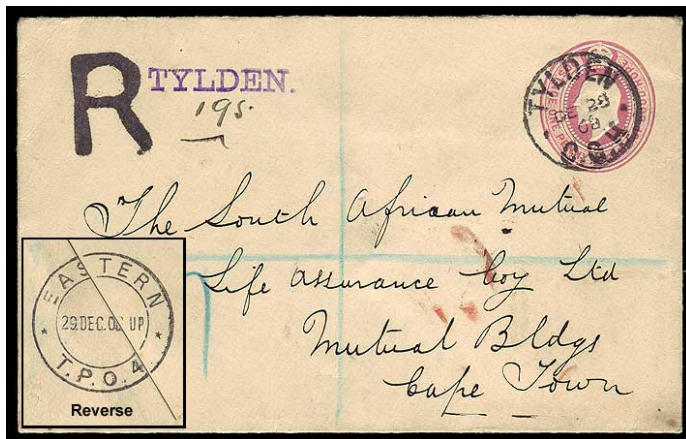 R TYLDEN.
195.
TYLDEN
DE 29
C.G.H.
The South African Mutual
Life Assurance Coy Ltd
Mutual Bldgs
Cape Town
EASTERN
29.DEC.08 UP
T.P.O. 4
Reverse